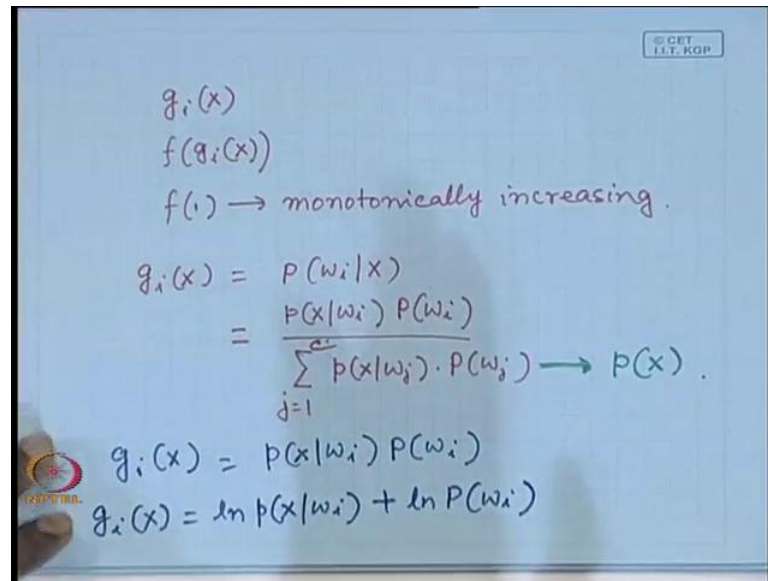 © CET
I.I.T. KGP
gᵢ(x)
f(gᵢ(x))
f(.) → monotonically increasing.
gᵢ(x) = P(ωᵢ|x)
= p(x|ωᵢ) P(ωᵢ)
c
∑ p(x|ωⱼ) · P(ωⱼ) → p(x).
j=1
gᵢ(x) = p(x|ωᵢ) P(ωᵢ)
NPTEL
gᵢ(x) = ln p(x|ωᵢ) + ln P(ωᵢ)